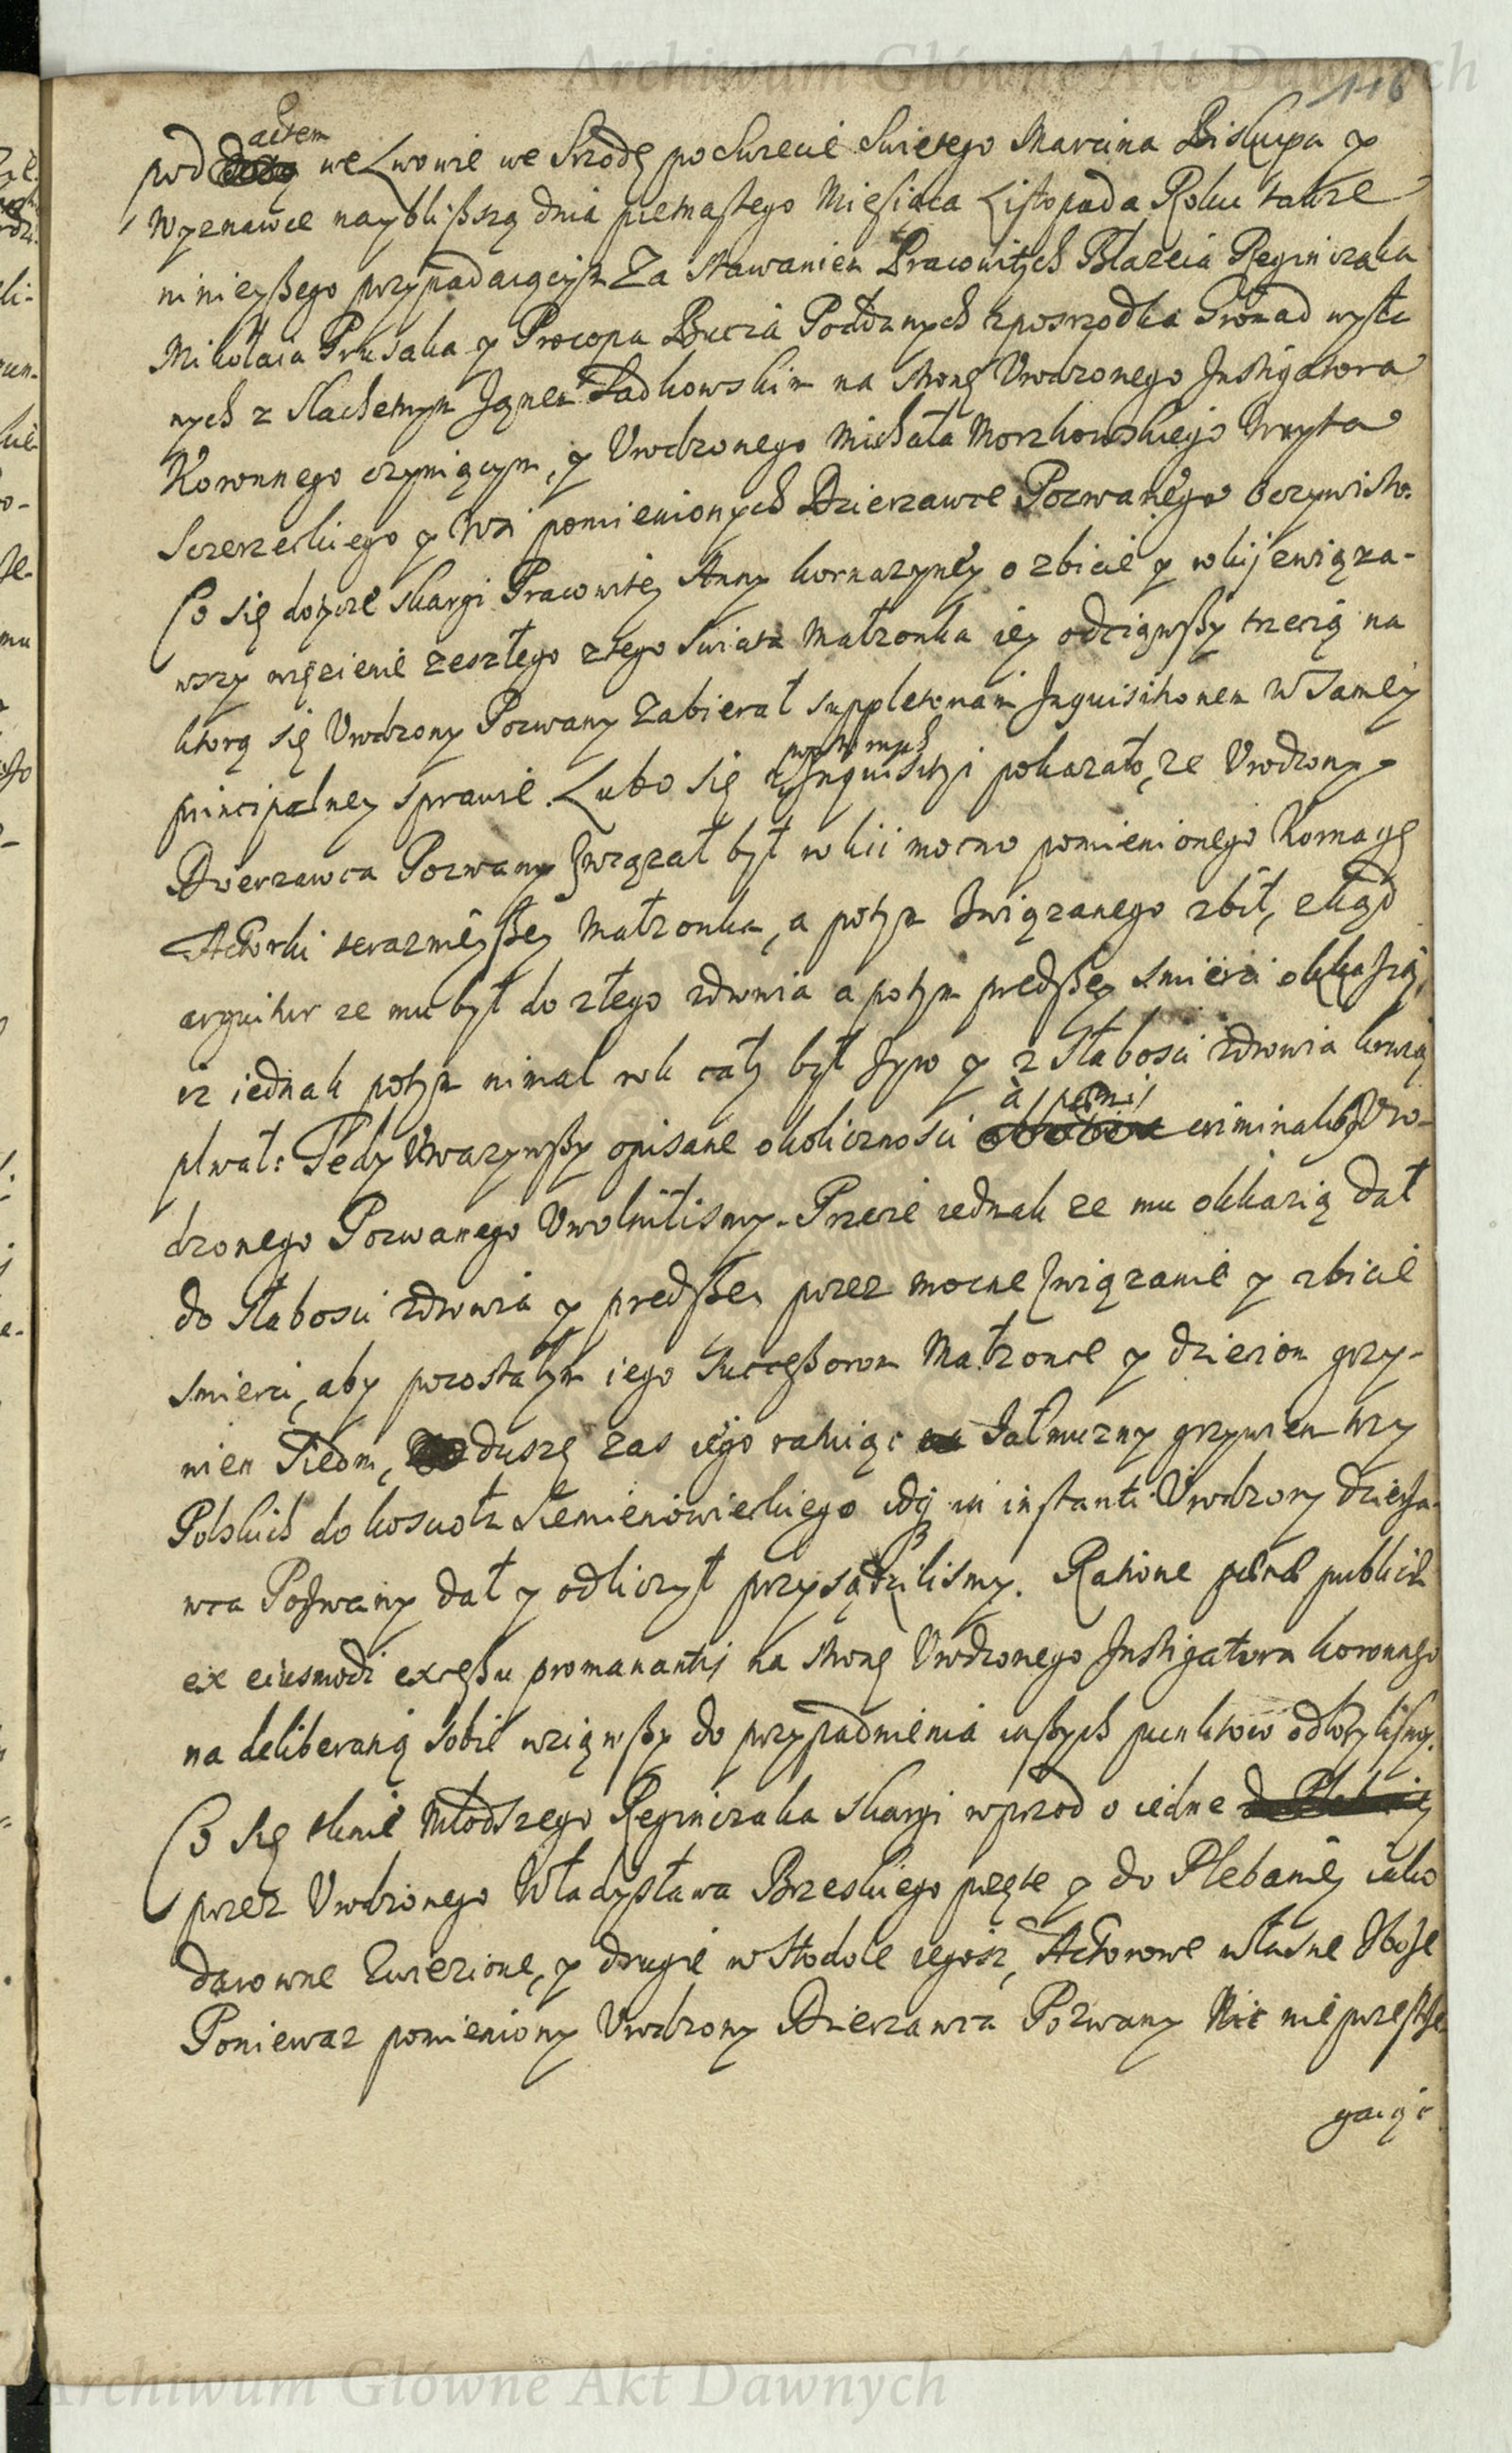 Archiwum Główne Akt Dawnych
116
actem
pod we Lwowie we Srzodę po Swięcie Swiętego Marcina Biskupa y
Wyznawce nayblißszą dnia piętnastego Miesiąca Listopada Roku także
ninieyßego przypadaiącym Za stawaniem Pracowitych Błażeia Reginiczaka
Mikołaia Prusaka y Procopa Bucia Poddanych zposrzodka Gromad wysła
nych z Slachetnym Janem Ładkowskim na stronę Urodzonego Instigatora
Koronnego czyniącym, y Urodzonego Michała Morzkowskiego Woyta
Szczerzeckiego y Wsi pomienionych Dzierzawce Pozwanego oczywisto.
Co się dotycze skargi Pracowitey Anny kornazyney o zbicie y w kij związa-
wszy więzienie zeszłego z tego Swiata Małzonka iey odciąwszy trzecią na
ktorą się Urodzony Pozwany Zabierał suppletoriam Inquisitionem W samey
principalney sprawie. Lubo się z Inquisitii pokazało, ze Urodzony
Dzierzawca Pozwany Związał był w kii mocno pomienionego Kornagę
Aktorki teraznieyßey Małzonka, a potym Związanego zbił, zkąd
arguitur ze mu był do złego zdrowia a potym prędßey smierci okkazyą,
iz iednak potym nimal rok cały był zyw y z słabosci zdrowia
à pœnis
plwał: Tedy Uwazywßy opisane okolicznosci criminalibus Uro-
dzonego Pozwanego Uwolnilismy. Przecie iednak ze mu okkazią dał
do słabosci zdrowia y prędßey przez mocne Związanie y zbicie
smierci, aby pozostałym iego Successorom Małzonce y dzieciom grzy-
wien siedm, duszę zas iego ratuiąc Jałmuzny grzywien trzy
Polskich do koscioła Siemienowieckiego in instanti Urodzony dzierza-
wca Pozwany dał y odliczył przysądzilismy. Ratione pœnæ publicæ
ex eiusmodi exceßu promanantis na stronę Urodzonego Instigatora koronnego
na deliberatią sobie wziąwßy do przypadnienia inßych punktow odłozylismy.
Co się tknie Młodszego Reginiczaka skargi wprzod o iedne
przez Urodzonego Władysława Brzeskiego pięte y do Plebaniey iako
darowne Zwiezione, y drugie w stodole iegosz, Aktorowe własne Zboże
Poniewaz pomieniony Urodzony Dzierzawca Pozwany Nic nieprzestrze-
gaiąc
Archiwum Główne Akt Dawnych